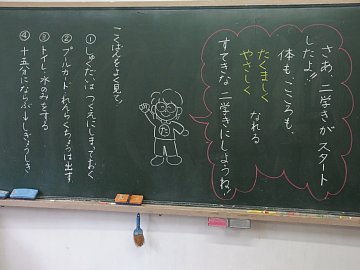 さあ、二学きがスタート
したよ!!
体もこころも、
たくましく
やさしく
なれる
すてきな二学きにしようね。
こくばんをよく見て!
①しゅくだいは つくえにしまっておく
②プールカード・れんらくちょうは出す
③トイレ・水のみをする
④十五分にならぶ→しぎょうしき
た